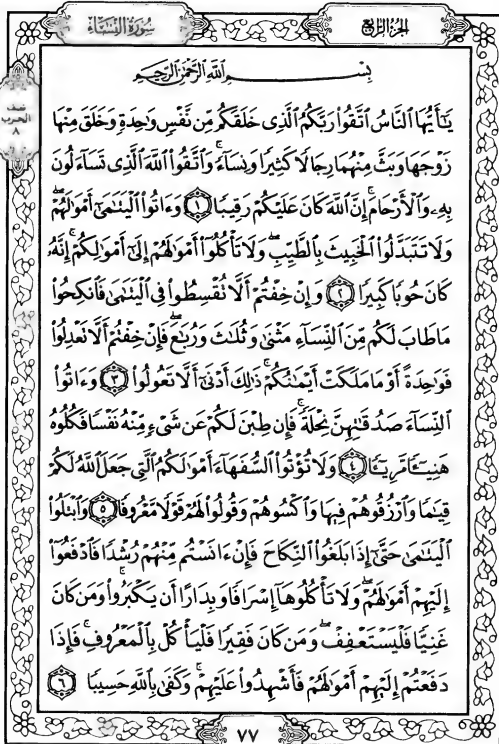 سُورَةُ النِّسَاءِ
الجُزْءُ الرَّابِعُ
نصف
الحزب
٨
بِسْمِ اللَّهِ الرَّحْمَٰنِ الرَّحِيمِ
يَٰٓأَيُّهَا ٱلنَّاسُ ٱتَّقُوا۟ رَبَّكُمُ ٱلَّذِى خَلَقَكُم مِّن نَّفْسٍ وَٰحِدَةٍ وَخَلَقَ مِنْهَا
زَوْجَهَا وَبَثَّ مِنْهُمَا رِجَالًا كَثِيرًا وَنِسَآءً ۚ وَٱتَّقُوا۟ ٱللَّهَ ٱلَّذِى تَسَآءَلُونَ
بِهِۦ وَٱلْأَرْحَامَ ۚ إِنَّ ٱللَّهَ كَانَ عَلَيْكُمْ رَقِيبًا ١ وَءَاتُوا۟ ٱلْيَتَٰمَىٰٓ أَمْوَٰلَهُمْ ۖ
وَلَا تَتَبَدَّلُوا۟ ٱلْخَبِيثَ بِٱلطَّيِّبِ ۖ وَلَا تَأْكُلُوٓا۟ أَمْوَٰلَهُمْ إِلَىٰٓ أَمْوَٰلِكُمْ ۚ إِنَّهُۥ
كَانَ حُوبًا كَبِيرًا ٢ وَإِنْ خِفْتُمْ أَلَّا تُقْسِطُوا۟ فِى ٱلْيَتَٰمَىٰ فَٱنكِحُوا۟
مَا طَابَ لَكُم مِّنَ ٱلنِّسَآءِ مَثْنَىٰ وَثُلَٰثَ وَرُبَٰعَ ۖ فَإِنْ خِفْتُمْ أَلَّا تَعْدِلُوا۟
فَوَٰحِدَةً أَوْ مَا مَلَكَتْ أَيْمَٰنُكُمْ ۚ ذَٰلِكَ أَدْنَىٰٓ أَلَّا تَعُولُوا۟ ٣ وَءَاتُوا۟
ٱلنِّسَآءَ صَدُقَٰتِهِنَّ نِحْلَةً ۚ فَإِن طِبْنَ لَكُمْ عَن شَىْءٍ مِّنْهُ نَفْسًا فَكُلُوهُ
هَنِيٓـًٔا مَّرِيٓـًٔا ٤ وَلَا تُؤْتُوا۟ ٱلسُّفَهَآءَ أَمْوَٰلَكُمُ ٱلَّتِى جَعَلَ ٱللَّهُ لَكُمْ
قِيَٰمًا وَٱرْزُقُوهُمْ فِيهَا وَٱكْسُوهُمْ وَقُولُوا۟ لَهُمْ قَوْلًا مَّعْرُوفًا ٥ وَٱبْتَلُوا۟
ٱلْيَتَٰمَىٰ حَتَّىٰٓ إِذَا بَلَغُوا۟ ٱلنِّكَاحَ فَإِنْ ءَانَسْتُم مِّنْهُمْ رُشْدًا فَٱدْفَعُوٓا۟
إِلَيْهِمْ أَمْوَٰلَهُمْ ۖ وَلَا تَأْكُلُوهَآ إِسْرَافًا وَبِدَارًا أَن يَكْبَرُوا۟ ۚ وَمَن كَانَ
غَنِيًّا فَلْيَسْتَعْفِفْ ۖ وَمَن كَانَ فَقِيرًا فَلْيَأْكُلْ بِٱلْمَعْرُوفِ ۚ فَإِذَا
دَفَعْتُمْ إِلَيْهِمْ أَمْوَٰلَهُمْ فَأَشْهِدُوا۟ عَلَيْهِمْ ۚ وَكَفَىٰ بِٱللَّهِ حَسِيبًا ٦
٧٧